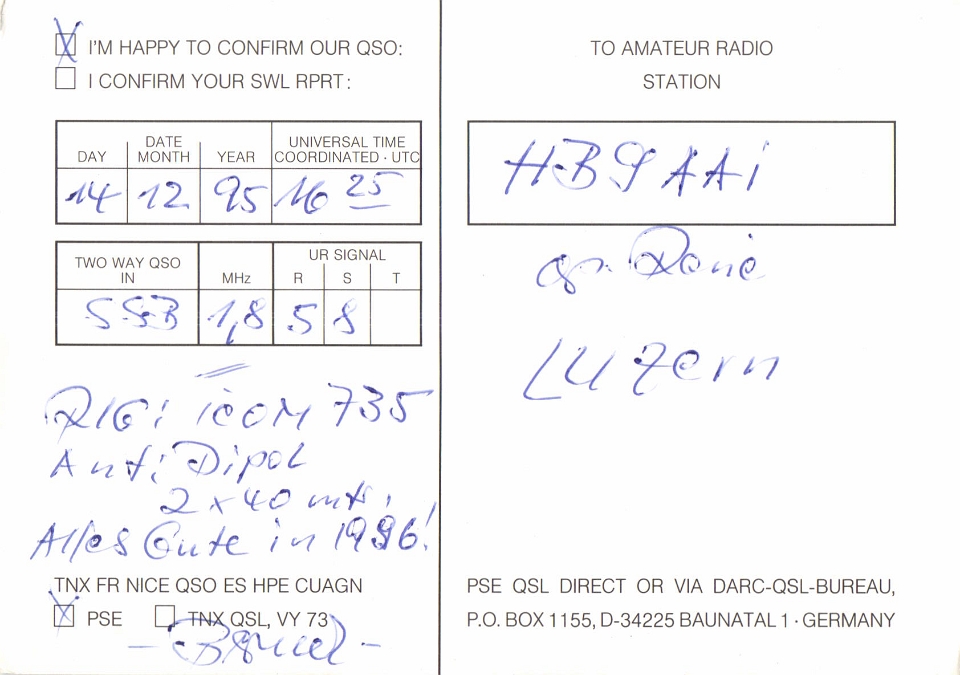 X I'M HAPPY TO CONFIRM OUR QSO:
I CONFIRM YOUR SWL RPRT:
DATE
DAY MONTH YEAR
UNIVERSAL TIME
COORDINATED · UTC
14 12 95 16 25
TWO WAY QSO
IN
MHz
UR SIGNAL
R S T
SSB 1,8 5 8
RIG: iCOM 735
Ant: Dipol
2 x 40 mtr.
Alles Gute in 1996!
TNX FR NICE QSO ES HPE CUAGN
X PSE TNX QSL, VY 73
TO AMATEUR RADIO
STATION
HB9AAi
op. René
LUzern
PSE QSL DIRECT OR VIA DARC-QSL-BUREAU,
P.O. BOX 1155, D-34225 BAUNATAL 1 · GERMANY